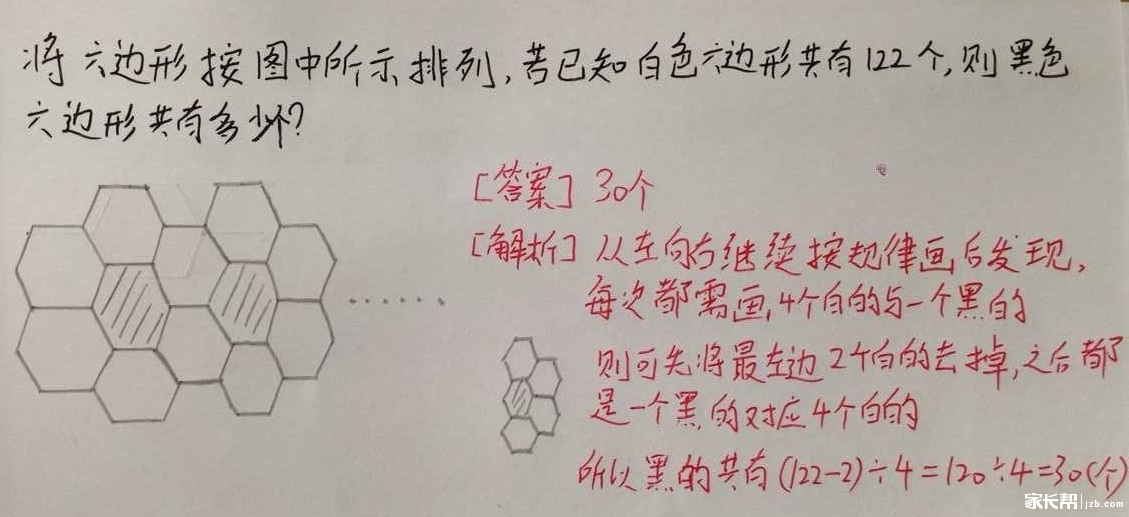 将六边形按图中所示排列,若已知白色六边形共有122个,则黑色
六边形共有多少个?
[答案] 30个
[解析] 从左向右继续按规律画后发现,
每次都需画4个白的与一个黑的
则可先将最左边2个白的去掉,之后都
是一个黑的对应4个白的
所以黑的共有(122-2)÷4=120÷4=30(个)
家长帮 jzb.com